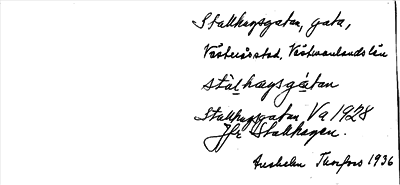 Stallhagsgatan, gata,
Västeråsstad, Västmanlands län
stàlhagsgàtan
Stallhagsgatan Va 1928
Jfr Stallhagen.
1936